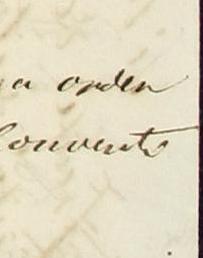 a orden
Convento